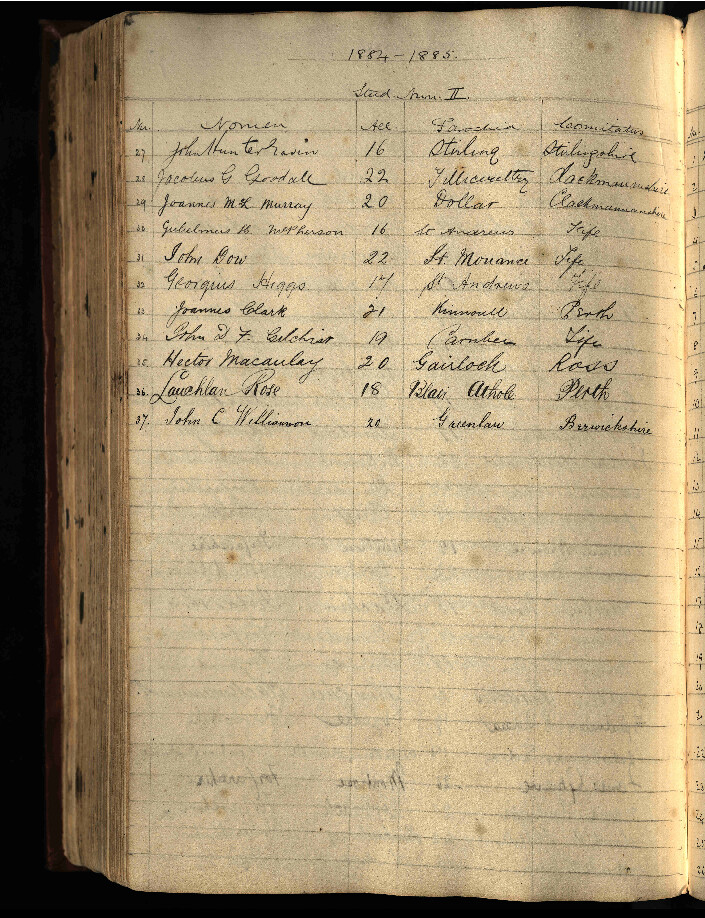 1884-1885.
Stud. Num. II.
Nr. Nomen Aet. Parochia Comitatus
27 John Hunter 16 Stirling Stirlingshire
28 Jacobus G Goodall 22 Tillicoultry Clackmannanshire
29 Joannes McK Murray 20 Dollar Clackmannanshire
30 McPherson 16 St Andrews Fife
31 John Dow 22 St. Monance Fife
32 Georgius Higgs 17 St Andrews Fife
33 Joannes Clark 21 Kinnoull Perth
34 John D. F. Gilchrist 19 Carnbee Fife
35 Hector Macaulay 20 Gairloch Ross
36. Lauchlan Rose 18 Blair Athole Perth
37. John C Williamson 20 Greenlaw Berwickshire